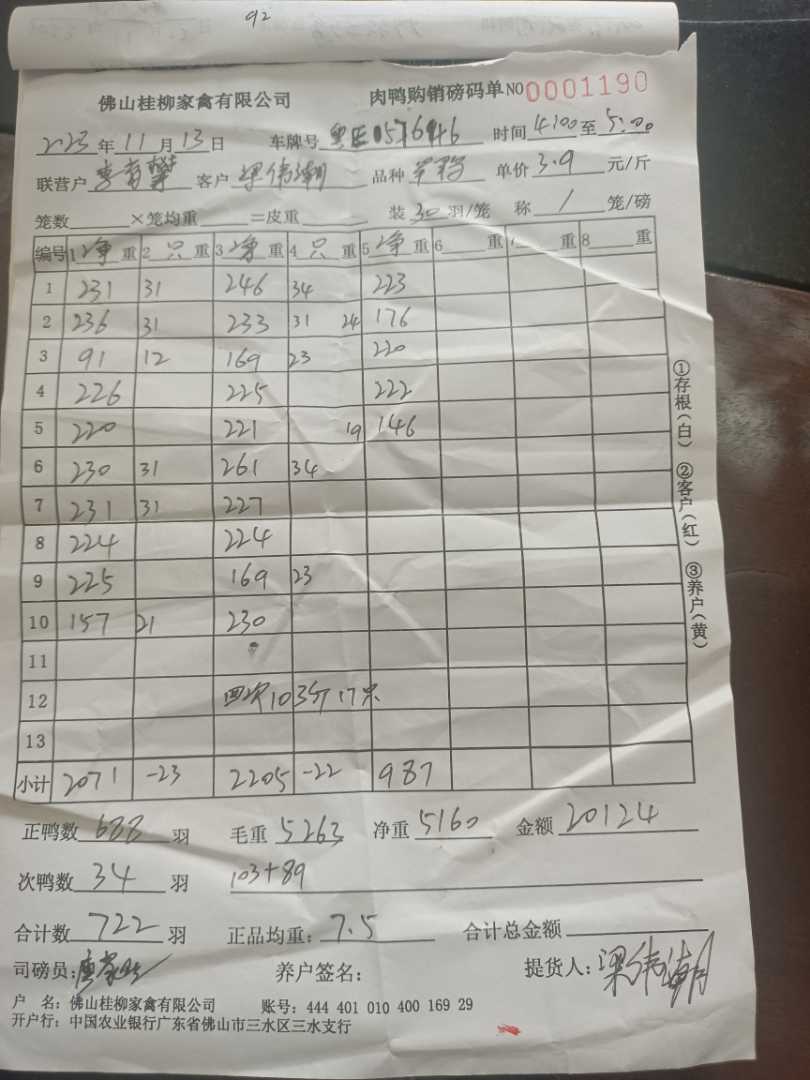 92
佛山桂柳家禽有限公司 肉鸭购销磅码单 NO 0001190
223年11月13日 车牌号 时间4:00至5:00
联营户 李 客户 梁伟潮 品种 单价3.9元/斤
笼数 ×笼均重 =皮重 装30羽/笼 称1笼/磅
编号 1净重 2只重 3净重 4只重 5净重 6重 7重 8重
1 231 31 246 34 223
2 236 31 233 31 24 176
3 91 12 169 23 220
4 226 225 222
5 220 221 19 146
6 230 31 261 34
7 231 31 227
8 224 224
9 225 169 23
10 157 21 230
11
12 四次103斤17只
13
小计 2071 -23 2205 -22 987
正鸭数688羽 毛重5263 净重5160 金额20124
次鸭数34羽 103+89
合计数722羽 正品均重:7.5 合计总金额
司磅员: 养户签名: 提货人:梁伟潮
户 名:佛山桂柳家禽有限公司 账号:444 401 010 400 169 29
开户行:中国农业银行广东省佛山市三水区三水支行
①存根(白) ②客户(红) ③养户(黄)